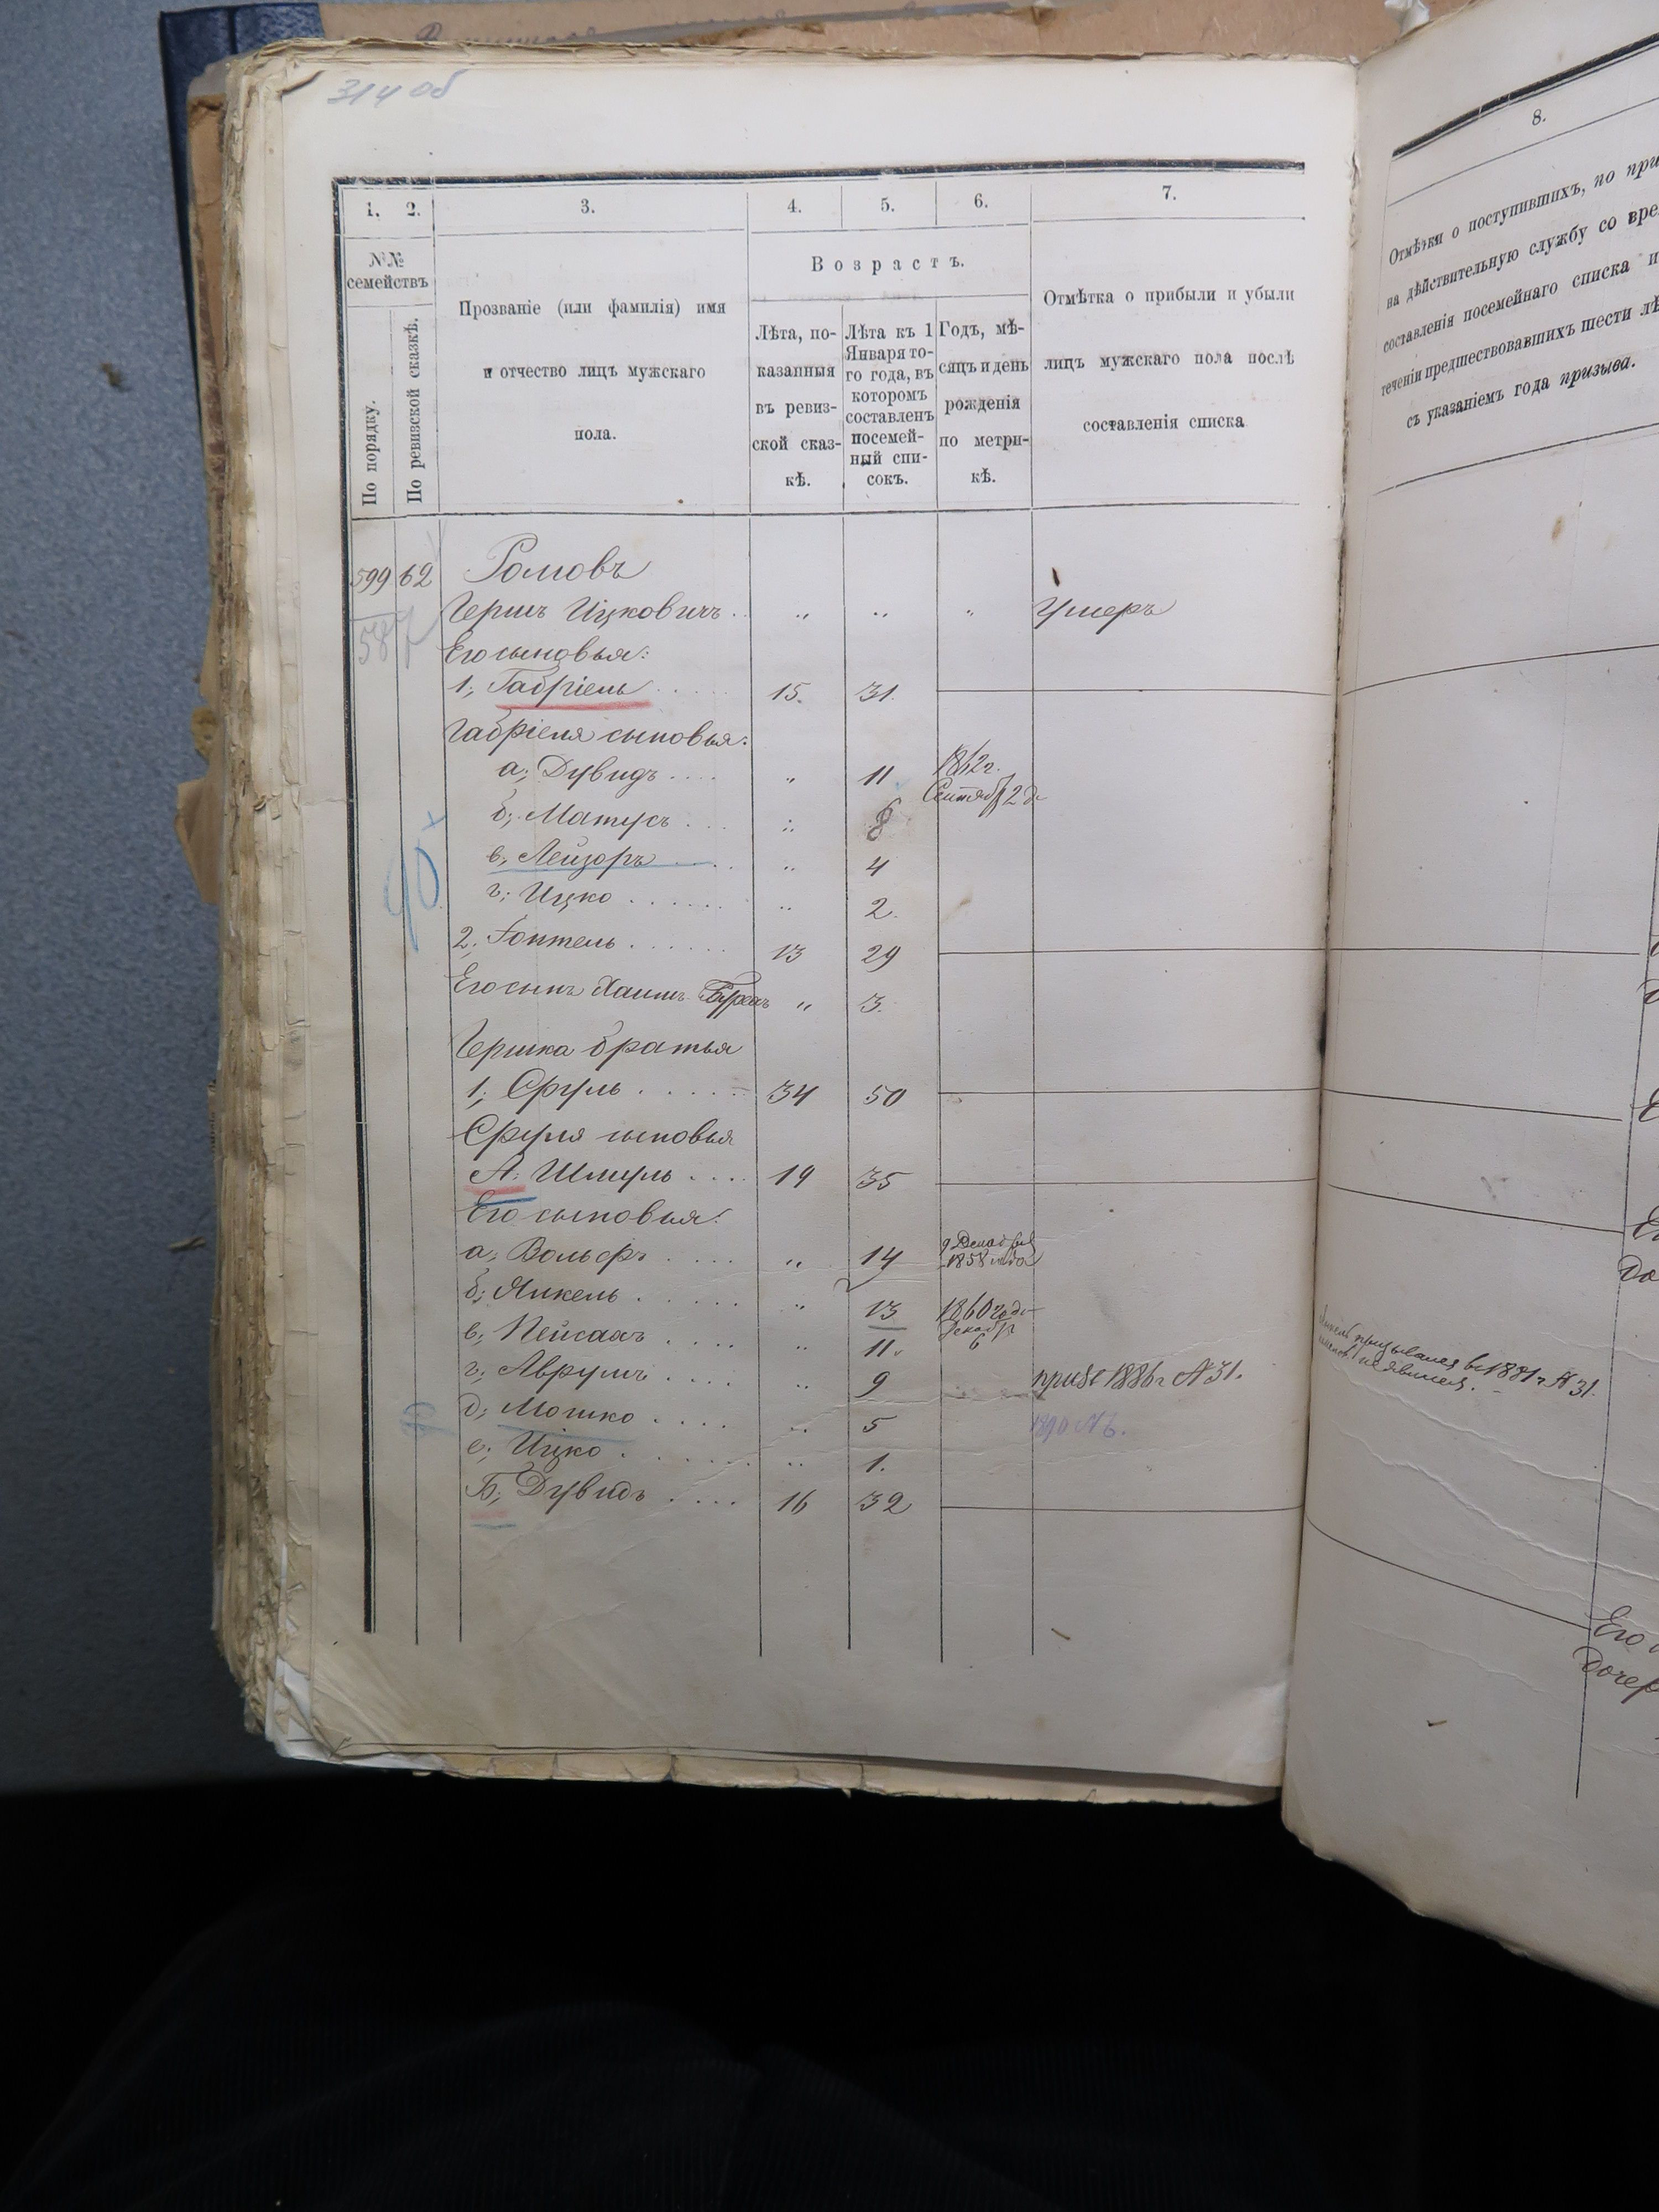 314 об
1. 2. 3. 4. 5. 6. 7.
№№ семействъ
По порядку.
По ревизской сказкѣ.
Прозваніе (или фамилія) имя
и отчество лицъ мужскаго
пола.
Возрастъ.
Лѣта, по-
казанныя
въ ревиз-
ской сказ-
кѣ.
Лѣта къ 1
Января то-
го года, въ
которомъ
составленъ
посемей-
ный спи-
сокъ.
Годъ, мѣ-
сяцъ и день
рожденія
по метри-
кѣ.
Отмѣтка о прибыли и убыли
лицъ мужскаго пола послѣ
составленія списка
599 62 Ромовъ
587
Гершъ Ицковичъ .. " " " Умеръ
Его сыновья:
1; Габріель 15. 31.
Габріеля сыновья:
а; Дувидъ " 11 1862 г.
Сентяб 2 д
б; Матусъ " 8
в; Лейзоръ " 4
г; Ицко " 2.
90
2; 13 29
Его сынъ Хаимъ " 3.
Гершка братья
1; Сруль 34 50
Сруля сыновья
А; Шмуль 19 35
Его сыновья:
а; Вольфъ " 14 9 Декабря
1858 года
б; Янкель " 13 1860 года
Декабр
6
в; Пейсахъ " 11
г; Аврумъ " 9 приз 1886 г № 31.
д; Мошко " 5 1890 № 6.
е; Ицко " 1.
Б; Дувидъ 16 32
8.
Отмѣтки о поступившихъ, по при
на дѣйствительную службу со вре
составленія посемейнаго списка и
теченіи предшествовавшихъ шести лѣ
съ указаніемъ года призыва.
призывался въ 1881 г № 31.
не явился.
Его
Дочер